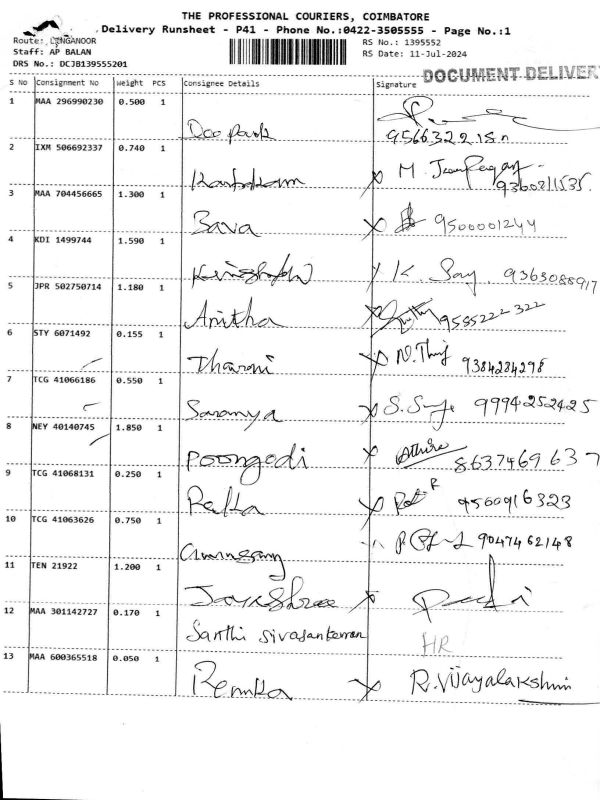 THE PROFESSIONAL COURIERS, COIMBATORE
Delivery Runsheet - P41 - Phone No.:0422-3505555 - Page No.:1
Route: LINGANOOR
Staff: AP BALAN
DRS No.: DCJB139555201
RS No.: 1395552
RS Date: 11-Jul-2024
DOCUMENT DELIVER
S No Consignment No Weight PCS Consignee Details Signature
1 MAA 296990230 0.500 1
2 IXM 506692337 0.740 1
M.
9360211535.
3 MAA 704456665 1.300 1
Bava X 9500001244
4 KDI 1499744 1.590 1
K. 9363088917
5 JPR 502750714 1.180 1
Anitha X 9585222322
6 STY 6071492 0.155 1
Dharani X 9384284298
7 TCG 41066186 0.550 1
Saranya X 9994252425
8 NEY 40140745 1.850 1
Poongodi X
8637469637
9 TCG 41068131 0.250 1
X 9500916323
10 TCG 41063626 0.750 1
9047462148
11 TEN 21922 1.200 1
Jayashree X
12 MAA 301142727 0.170 1
Santhi sivasankaran HR
13 MAA 600365518 0.050 1
Renuka X R.Vijayalakshmi